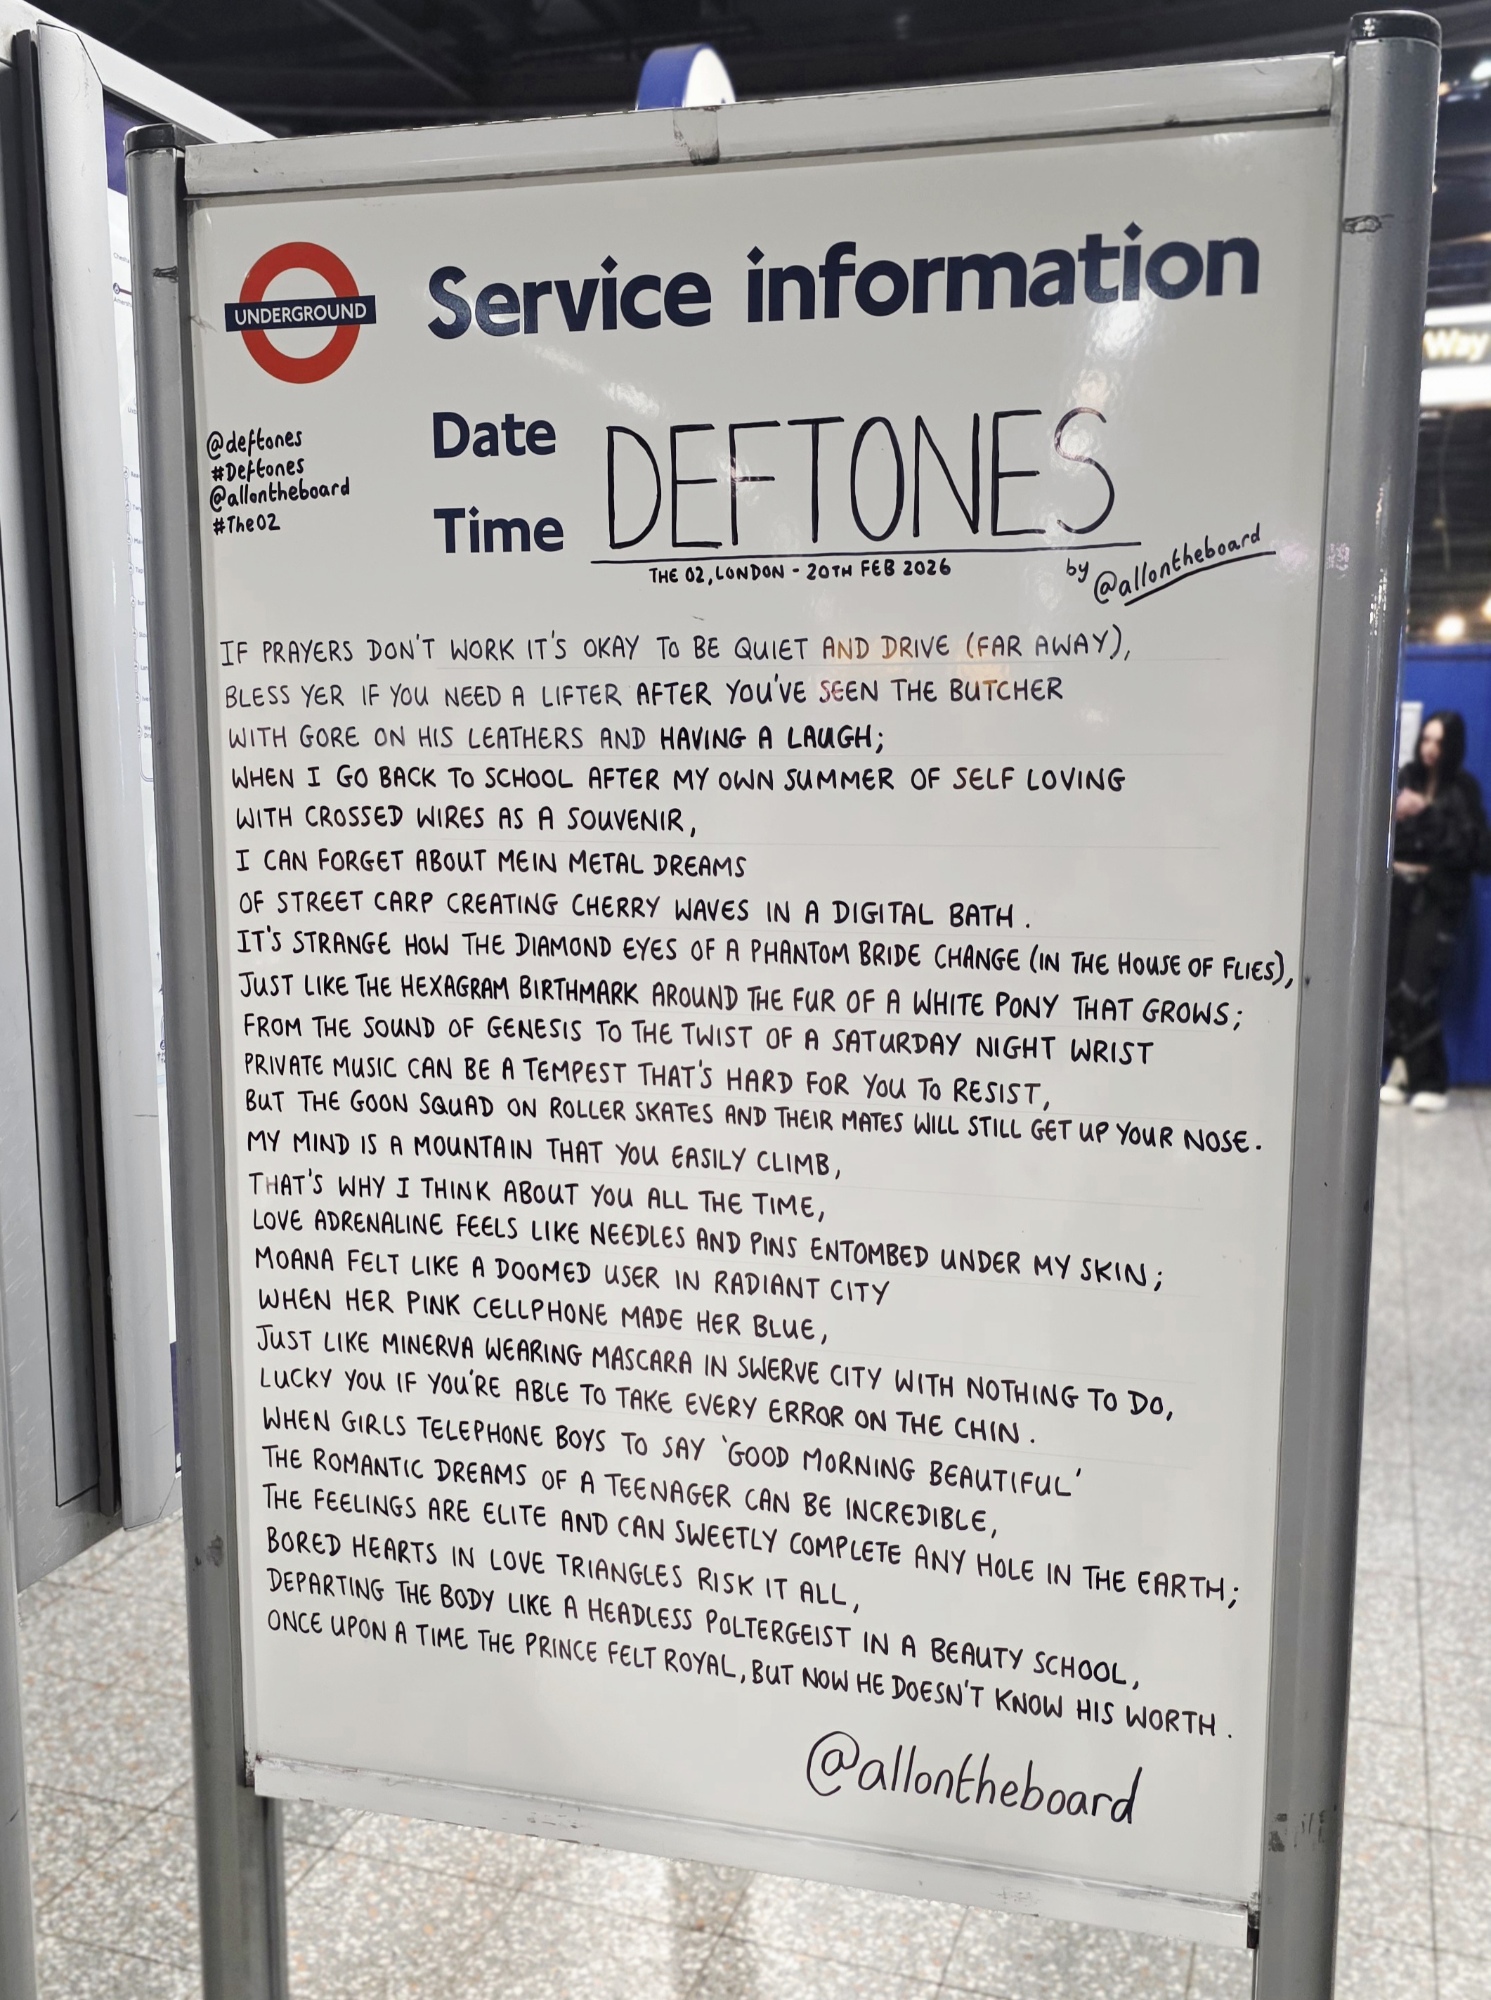 UNDERGROUND
Service information
@deftones
#Deftones
@allontheboard
#TheO2
Date
Time
DEFTONES
THE O2, LONDON - 20TH FEB 2026
by @allontheboard
IF PRAYERS DON'T WORK IT'S OKAY TO BE QUIET AND DRIVE (FAR AWAY),
BLESS YER IF YOU NEED A LIFTER AFTER YOU'VE SEEN THE BUTCHER
WITH GORE ON HIS LEATHERS AND HAVING A LAUGH;
WHEN I GO BACK TO SCHOOL AFTER MY OWN SUMMER OF SELF LOVING
WITH CROSSED WIRES AS A SOUVENIR,
I CAN FORGET ABOUT MEIN METAL DREAMS
OF STREET CARP CREATING CHERRY WAVES IN A DIGITAL BATH.
IT'S STRANGE HOW THE DIAMOND EYES OF A PHANTOM BRIDE CHANGE (IN THE HOUSE OF FLIES),
JUST LIKE THE HEXAGRAM BIRTHMARK AROUND THE FUR OF A WHITE PONY THAT GROWS;
FROM THE SOUND OF GENESIS TO THE TWIST OF A SATURDAY NIGHT WRIST
PRIVATE MUSIC CAN BE A TEMPEST THAT'S HARD FOR YOU TO RESIST,
BUT THE GOON SQUAD ON ROLLER SKATES AND THEIR MATES WILL STILL GET UP YOUR NOSE.
MY MIND IS A MOUNTAIN THAT YOU EASILY CLIMB,
THAT'S WHY I THINK ABOUT YOU ALL THE TIME,
LOVE ADRENALINE FEELS LIKE NEEDLES AND PINS ENTOMBED UNDER MY SKIN;
MOANA FELT LIKE A DOOMED USER IN RADIANT CITY
WHEN HER PINK CELLPHONE MADE HER BLUE,
JUST LIKE MINERVA WEARING MASCARA IN SWERVE CITY WITH NOTHING TO DO,
LUCKY YOU IF YOU'RE ABLE TO TAKE EVERY ERROR ON THE CHIN.
WHEN GIRLS TELEPHONE BOYS TO SAY 'GOOD MORNING BEAUTIFUL'
THE ROMANTIC DREAMS OF A TEENAGER CAN BE INCREDIBLE,
THE FEELINGS ARE ELITE AND CAN SWEETLY COMPLETE ANY HOLE IN THE EARTH;
BORED HEARTS IN LOVE TRIANGLES RISK IT ALL,
DEPARTING THE BODY LIKE A HEADLESS POLTERGEIST IN A BEAUTY SCHOOL,
ONCE UPON A TIME THE PRINCE FELT ROYAL, BUT NOW HE DOESN'T KNOW HIS WORTH.
@allontheboard
Way